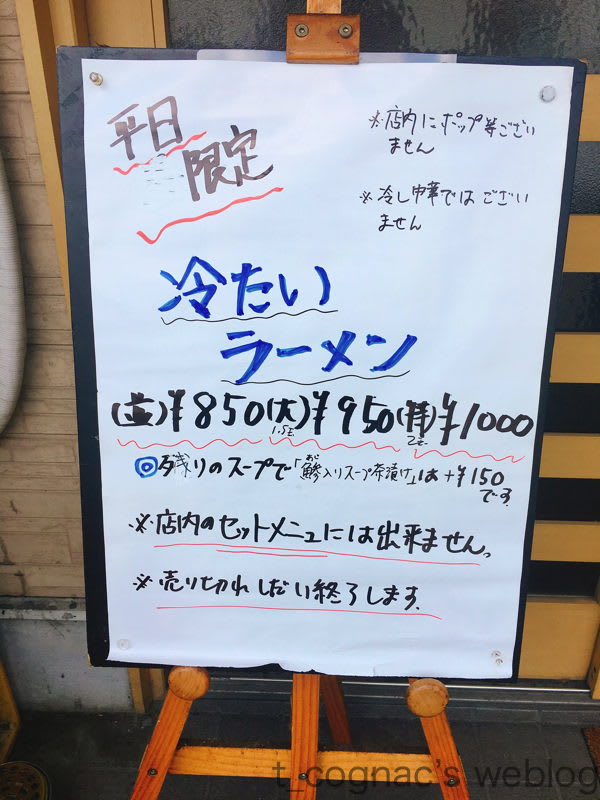 平日
限定
※店内にポップ等ござい
ません
※冷し中華ではござい
ません
冷たい
ラーメン
(並)¥850(大)¥950(特)¥1000
1.5玉
2玉
◎残りのスープで「鯵入りスープ茶漬け」は+¥150
です
※店内のセットメニューには出来ません。
※売り切れしだい終了します。
t_cognac's weblog